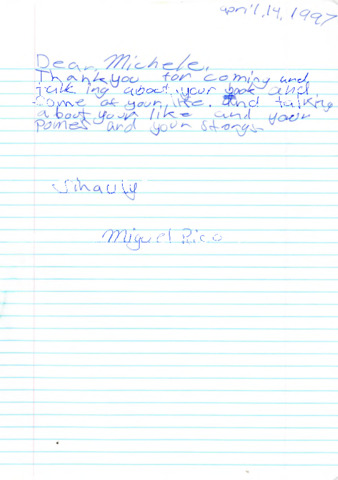 april, 14, 1997
Dear, Michele,
Thankyou for coming and
talking about your book and
some of your life. and talking
about your like and your
pomes and your storys
Sihauly
Miguel Rico